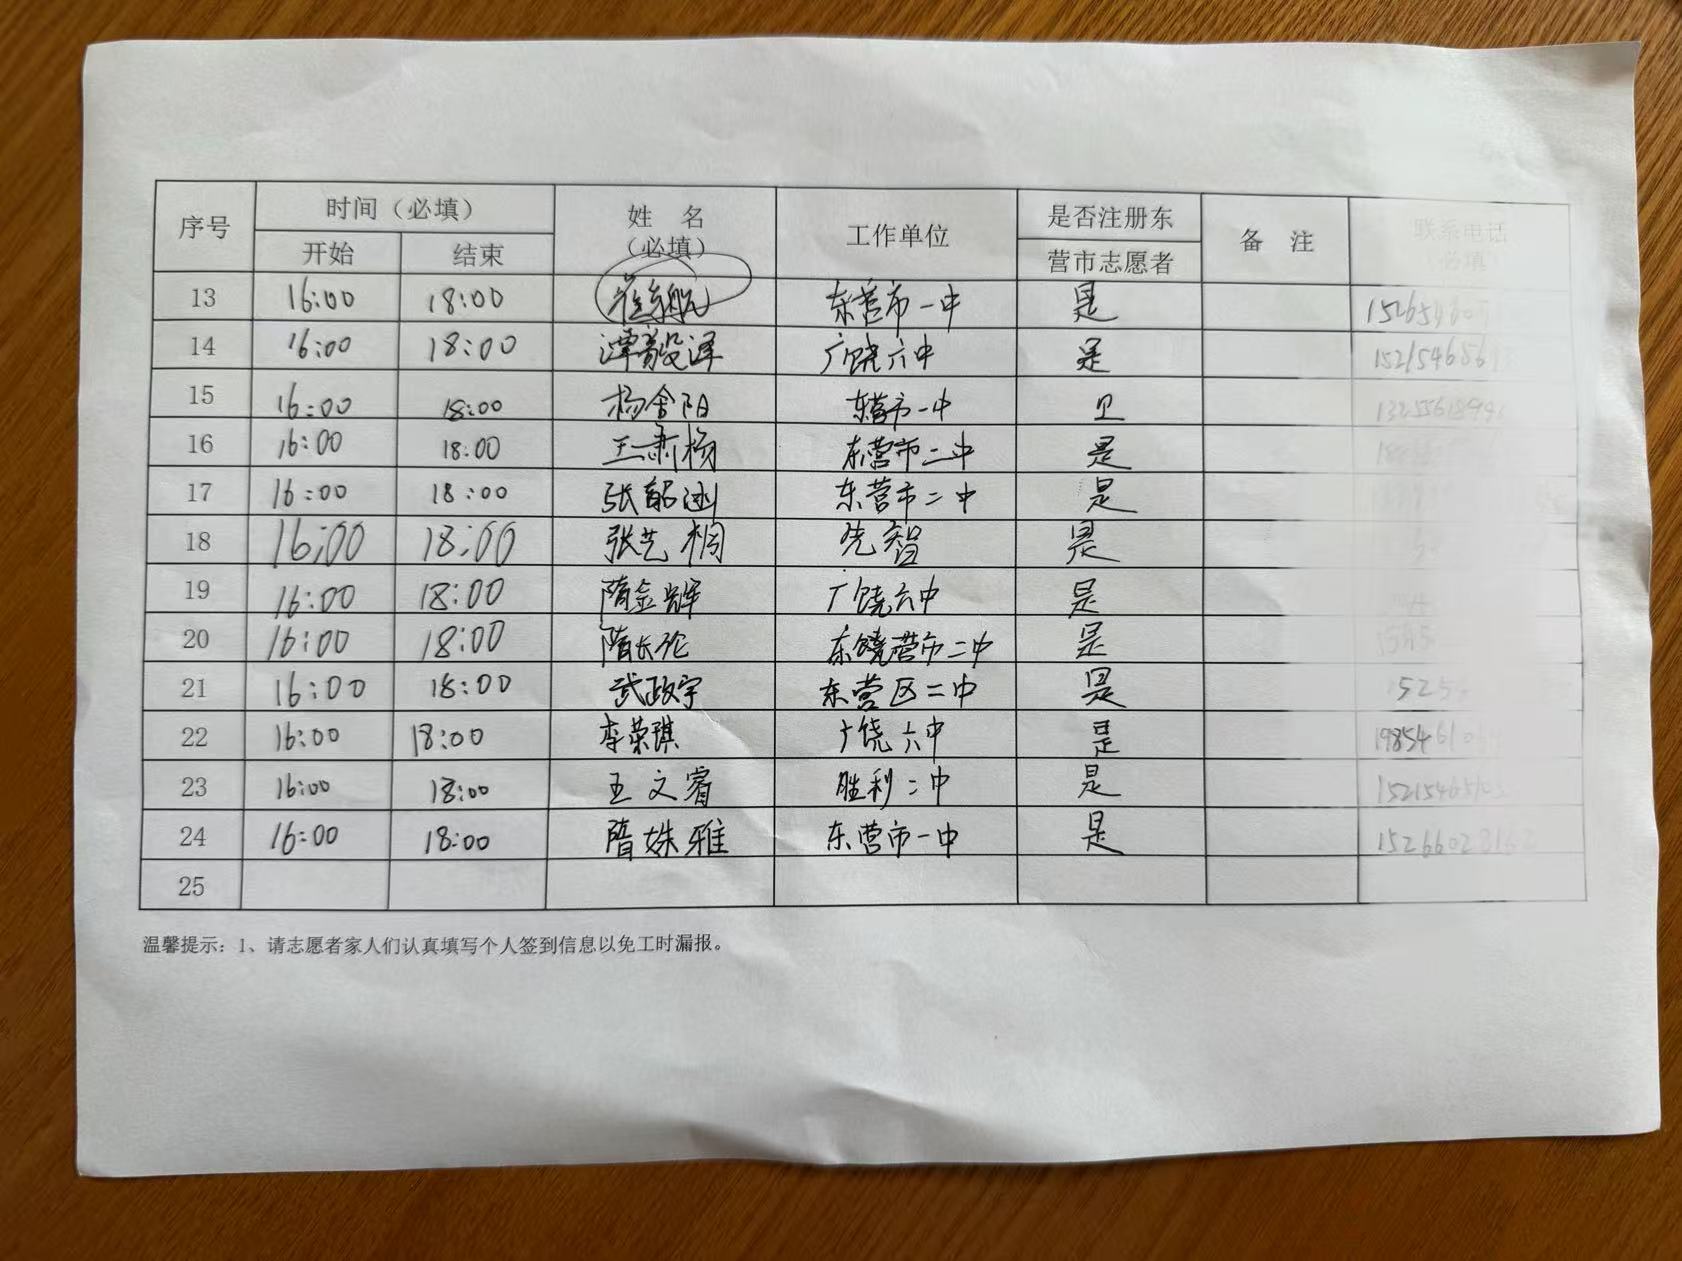 序号 时间（必填） 姓 名（必填） 工作单位 是否注册东营市志愿者 备 注 联系电话
开始 结束
13 16:00 18:00 东营市一中 是
14 16:00 18:00 谭毅泽 广饶六中 是
15 16:00 18:00 杨舍阳 东营市一中
16 16:00 18:00 王肃杨 东营市二中 是
17 16:00 18:00 张韶涵 东营市二中 是
18 16:00 18:00 张艺桐 先智 是
19 16:00 18:00 隋金辉 广饶六中 是
20 16:00 18:00 隋长论 东饶营市二中 是
21 16:00 18:00 武政宇 东营区二中 是
22 16:00 18:00 李荣琪 广饶六中 是
23 16:00 18:00 王文睿 胜利二中 是
24 16:00 18:00 隋姝雅 东营市一中 是
25
温馨提示：1、请志愿者家人们认真填写个人签到信息以免工时漏报。